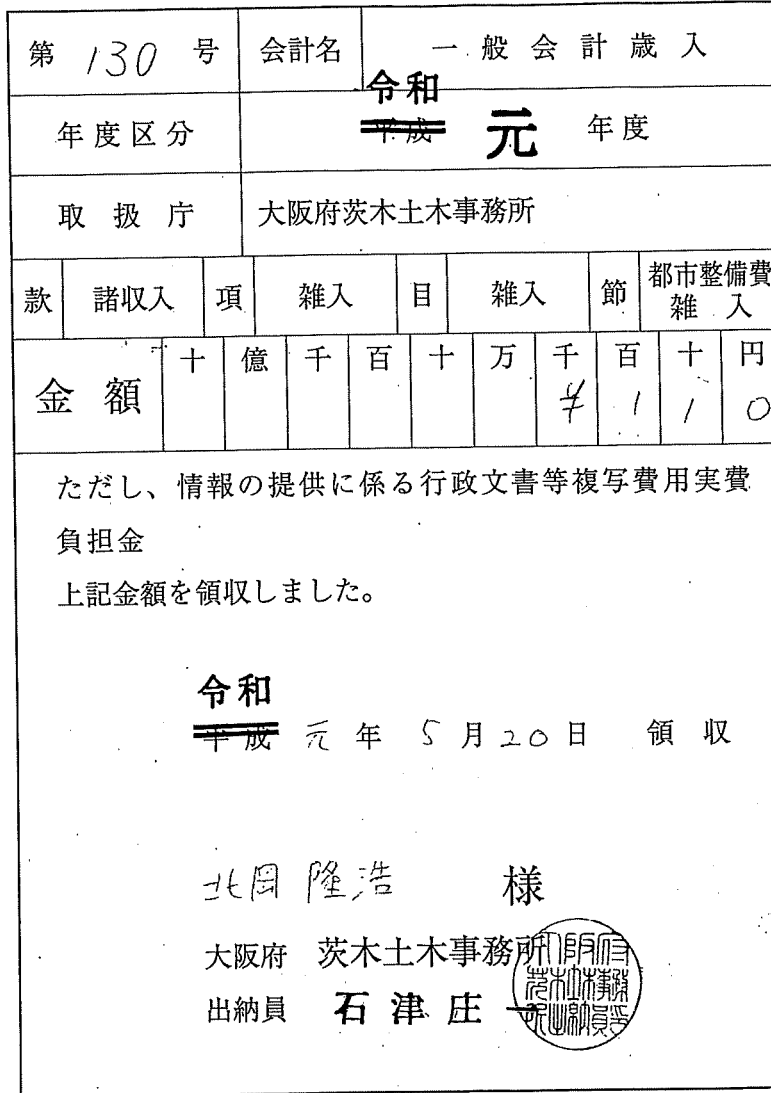 第 130 号 会計名 一般会計歳入
令和
年度区分 平成 元 年度
取扱庁 大阪府茨木土木事務所
款 諸収入 項 雑入 目 雑入 節 都市整備費
雑 入
十 億 千 百 十 万 千 百 十 円
金額 ¥ 1 1 0
ただし、情報の提供に係る行政文書等複写費用実費
負担金
上記金額を領収しました。
令和
平成 元 年 5 月 20 日 領収
北岡 隆浩 様
大阪府 茨木土木事務所
出納員 石津庄一